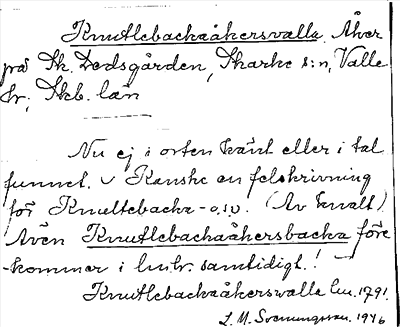 Knutlebackaåkersvalla. Åker
på St. Dedsgården, Skarke s:n, Valle
hr, Skb. län
Nu ej i orten känt eller i tal
funnet. Kanske en felskrivning
för Knultebacka- o.s.v. (Av knalt)
Även Knutlebackaåkersbacka före
-kommer i lmtr. samtidigt!
Knutlebackaåkersvalla Lm. 1791.
L. M. Svenungsson. 1946